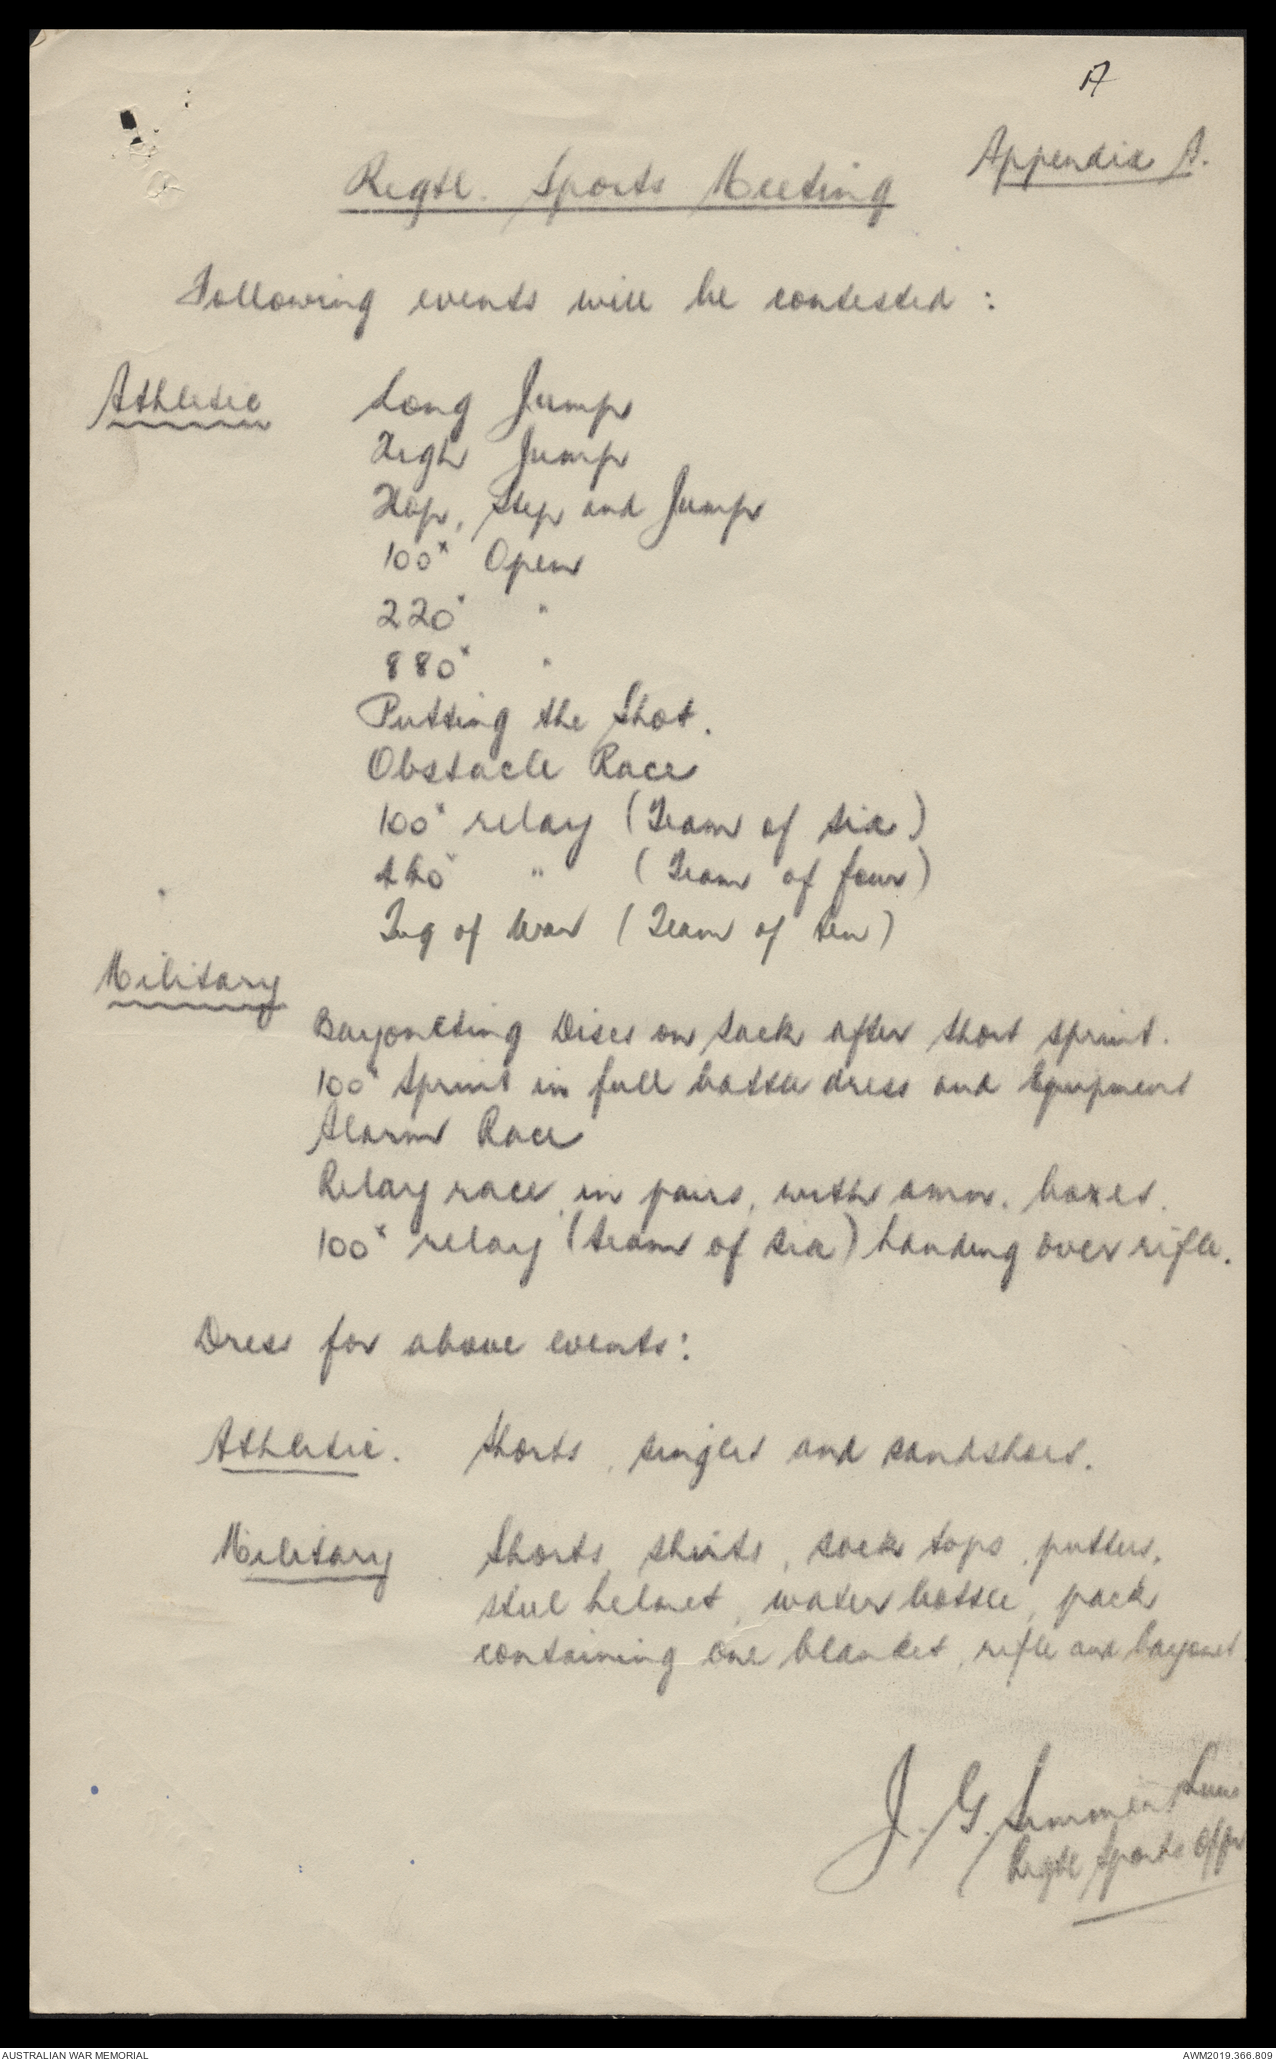 17
Appendix A.
Regtl. Sports Meeting
Following events will be contested :
Athletic Long Jump
High Jump
Hop, Step and Jump
100ˣ Open
220ˣ "
880ˣ "
Putting the Shot.
Obstacle Race
100ˣ relay (Team of six)
440ˣ " (Team of four)
Tug of War (Team of ten)
Military
Bayoneting Discs on sack after short sprint.
100ˣ Sprint in full battle dress and Equipment
Alarm Race
Relay race, in pairs, with amm. boxes.
100ˣ relay (team of six) handing over rifle.
Dress for above events:
Athletic. Shorts, singlet and sandshoes.
Military Shorts, shirts, sock tops, puttees,
steel helmet, water bottle, pack
containing one blanket, rifle and bayonet.
J. G.
Regtl Sports Offr
AUSTRALIAN WAR MEMORIAL
AWM2019.366.809